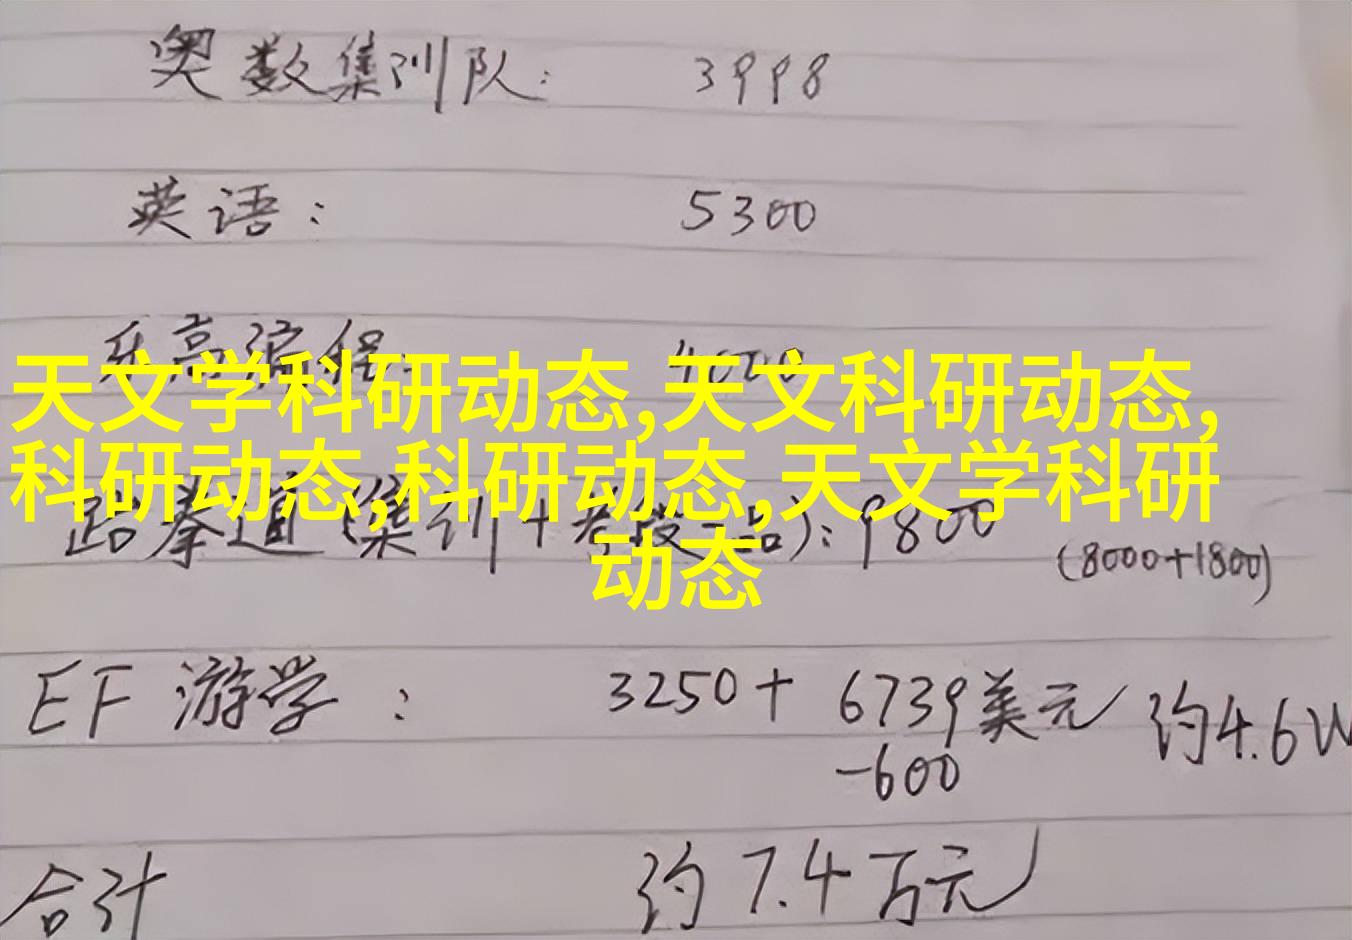 奥数集训队: 3998
英语: 5300
乐高编程: 4000
天文学科研动态,天文科研动态,
科研动态,科研动态,天文学科研
动态
跆拳道(集训+考段一品): 9800 (8000+1800)
EF 游学: 3250+ 6739美元 约4.6W
-600
合计 约7.4万元